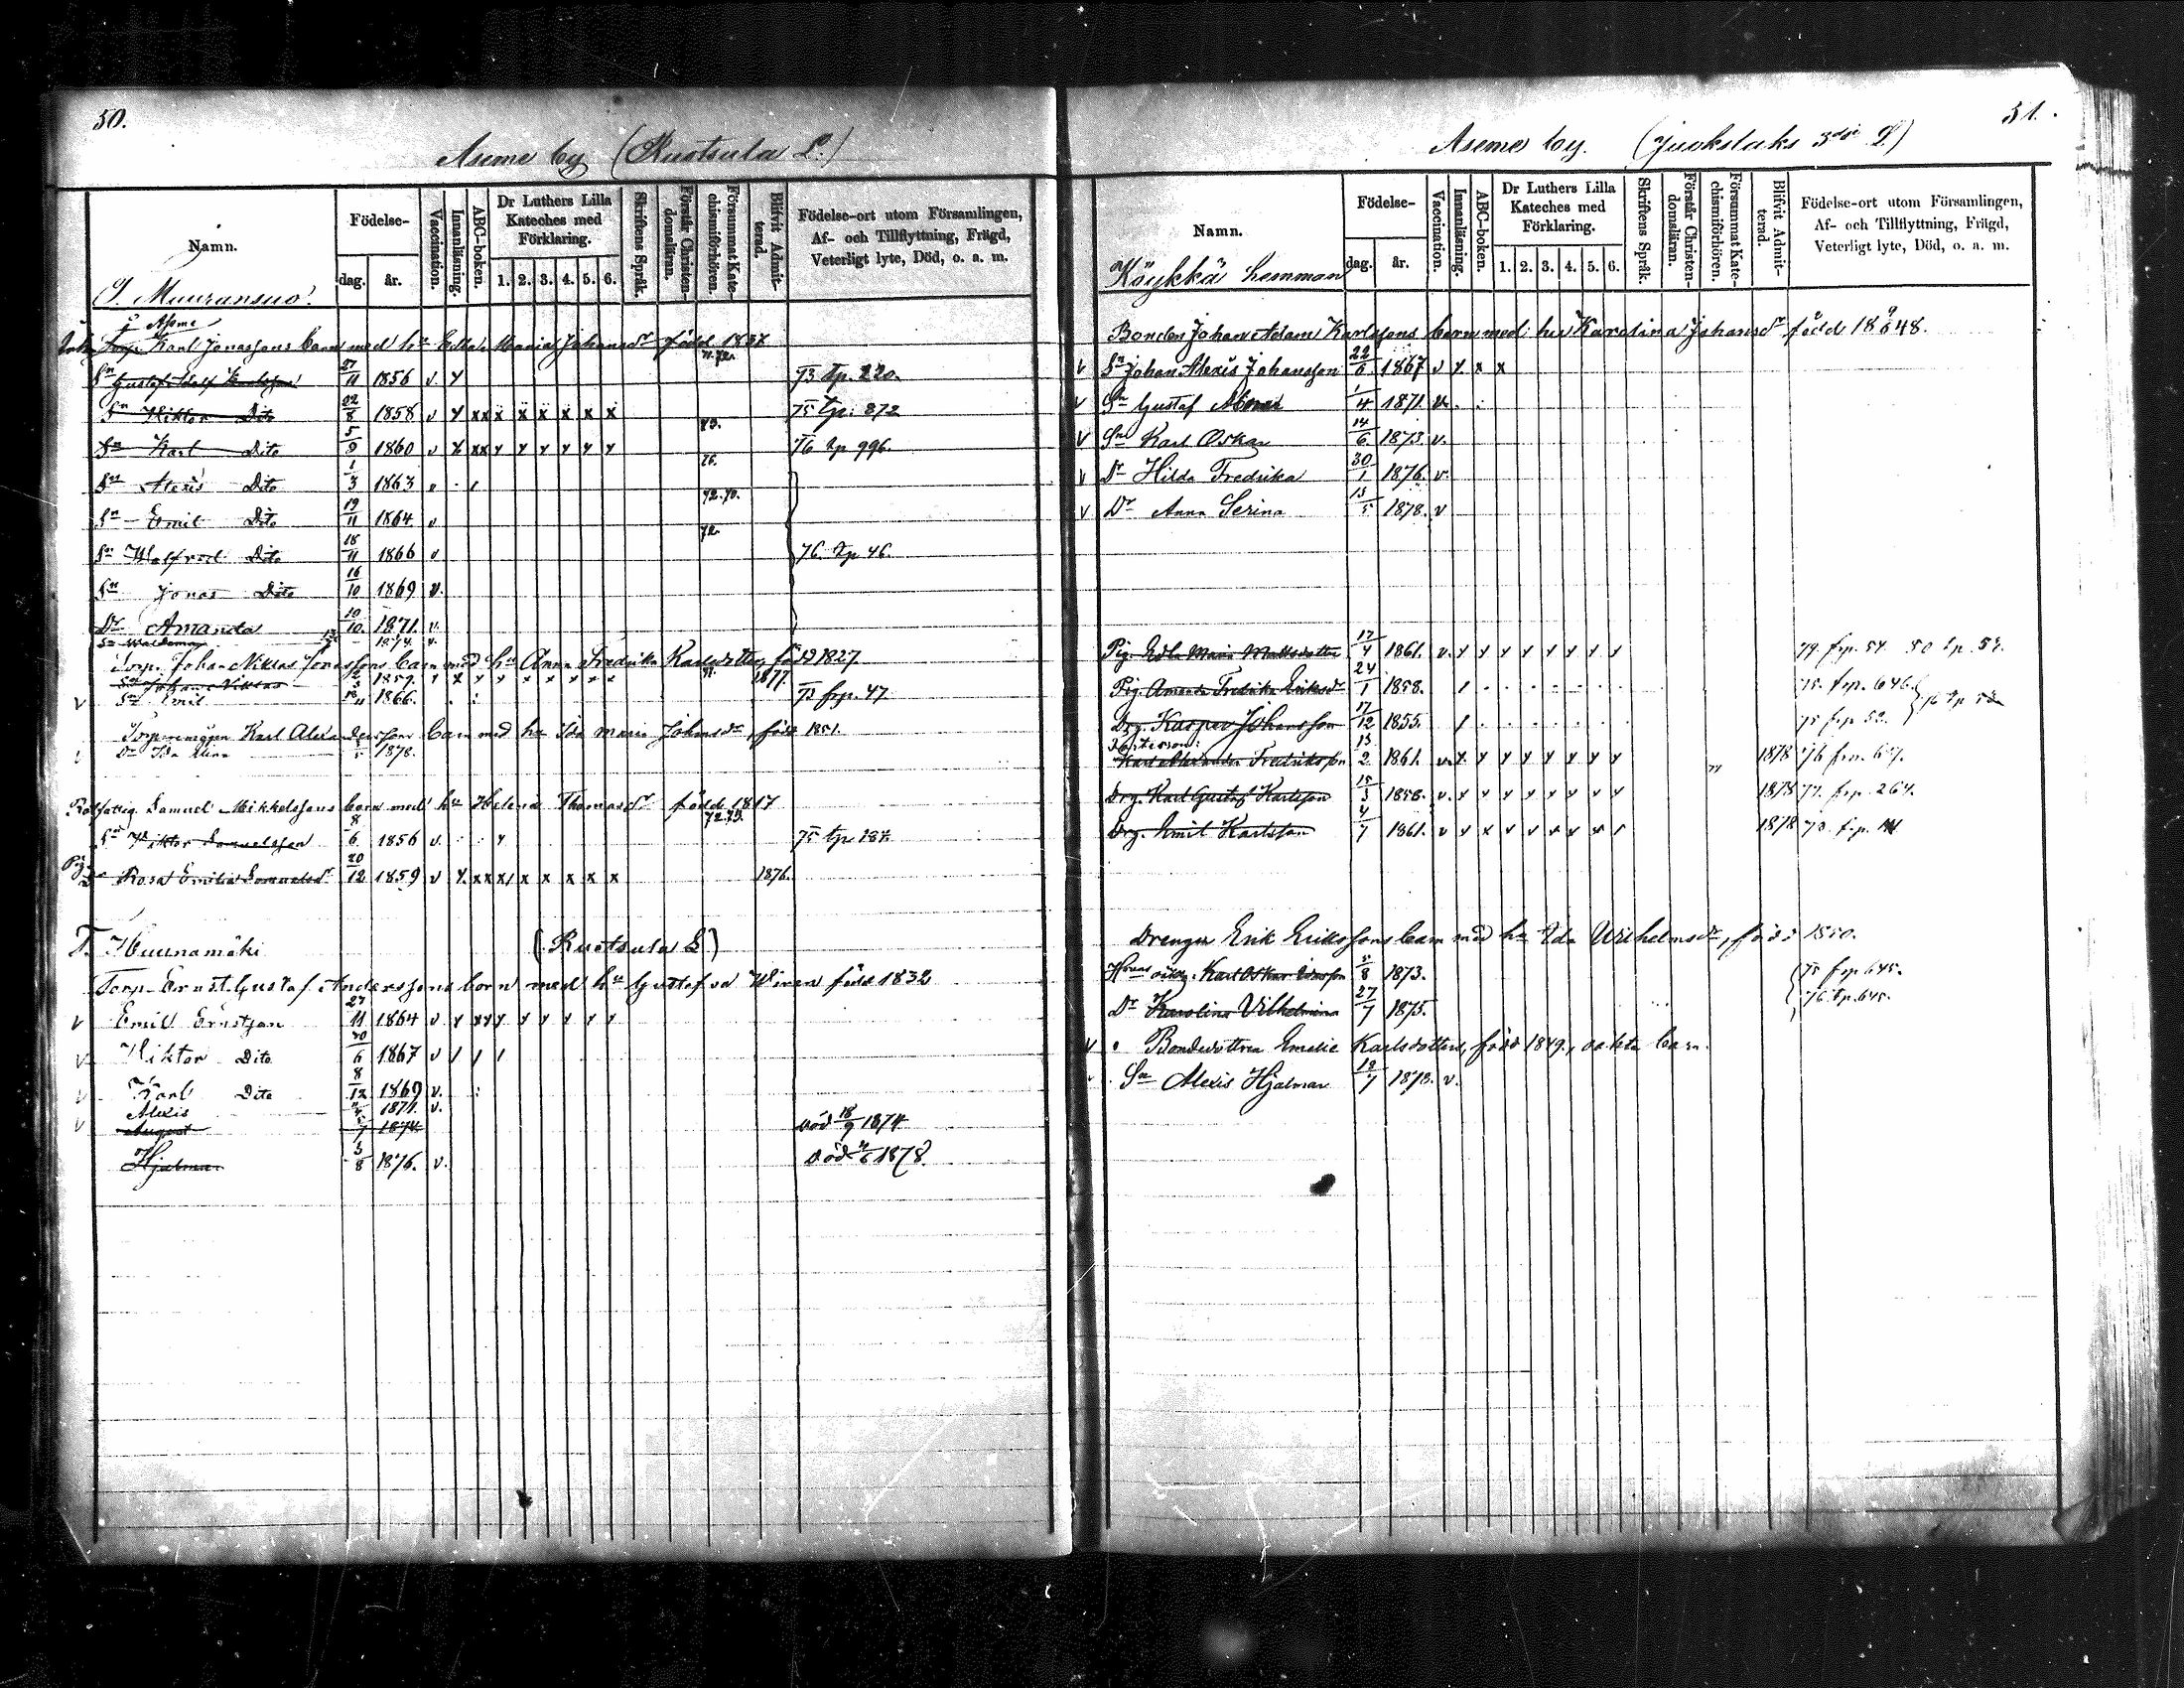 50.
Aseme by (Ruotsula L.)
Namn.
Födelse-
dag.
år.
Vaccination.
Innanläsning.
ABC-boken.
Dr Luthers Lilla Kateches med Förklaring.
1. 2. 3. 4. 5. 6.
Skriftens Språk.
Förstår Christen-domsläran.
Försummat Kate-chismiförhören.
Blifvit Admit-terad.
Födelse-ort utom Församlingen, Af- och Tillflyttning, Frägd, Veterligt lyte, Död, o. a. m.
Muuransuo.
Karl Jonassons barn med hu Edla Maria Johansdr född 1837
Sn Gustaf Adolf Karlsson 27/11 1856 v y 73 tp. 220.
Sn Viktor Dito 22/8 1858 v y xx x x x x x x 75 tp. 872
Sn Karl Dito 5/9 1860 v x xx y y y y y y 76 tp 996.
Sn Alexis Dito 1/3 1863
Sn Emil Dito 19/11 1864 v
Sn Walfrid Dito 18/11 1866 v 76. tp. 46.
Sn Jonas Dito 16/10 1869 v.
Dr Amanda 10/10 1871. v.
Sn Waldemar 1874. v.
Torp. Johan Niklas Jonassons barn med hu Anna Fredrika Karlsdotter, född 1827.
Sn Johan Niklas 1859. 1877.
Sn Emil 1866. 73 frp. 47.
Karl Alexanderssons barn med hu Ida Maria Johansdr, född 1851.
Dr Ida Elina 1878.
Rotfattig Samuel Mikkelssons barn med hu Helena Thomasdr född 1817
Sn Viktor Samuelsson 8/6 1856 v. 75 tp. 187.
Pig. Rosa Emilia Samuelsdr 20/12 1859 v y. xx x x x x x x 1876.
T. Huunamäki (Ruotsula L)
Torp. Ernst Gustaf Anderssons barn med hu Gustafva Wiren född 1832
Emil Ernstson 27/11 1864 v y xx y y y y y y
Viktor Dito 30/6 1867 v / / /
Karl Dito 8/12 1869 v.
Alexis 1871. v.
August 7 1874 död 18/9 1874
Hjalmar 3/8 1876. v. död 1878.
51.
Aseme by. (Juokslaks 3dje L)
Namn.
Födelse-
dag.
år.
Vaccination.
Innanläsning.
ABC-boken.
Dr Luthers Lilla Kateches med Förklaring.
1. 2. 3. 4. 5. 6.
Skriftens Språk.
Förstår Christen-domsläran.
Försummat Kate-chismiförhören.
Blifvit Admit-terad.
Födelse-ort utom Församlingen, Af- och Tillflyttning, Frägd, Veterligt lyte, Död, o. a. m.
Köykkä hemman
Bonden Johan Adam Karlssons barn med hu Karolina Johansdr född 1848.
v Sn Johan Alexis Johansson 22/6 1867 v y x x
v Sn Gustaf 1/4 1871. v.
v Sn Karl Oskar 14/6 1873 v.
v Dr Hilda Fredrika 30/1 1876. v.
v Dr Anna Serina 13/5 1878. v
Pig. Edla Maria Mattsdotter 17/4 1861. v. y y y y y y y y 79. frp. 54. 80 tp. 52.
Pig. Amanda Fredrika Eriksdr 24/1 1858. 75. frp. 646.
Drg. Kasper Johansson 17/12 1855. 75 frp 52.
Karl Alexander Fredriksson 13/2 1861. v. x y y y y y y y 1878 76 frn. 67.
Drg. Karl Gustaf Karlsson 15/3 1858. v. y y y y y y y y 1878 77. frp. 264.
Drg. Emil Karlsson 4/7 1861. v y x v y y y y 1878 78. frp.
Drengen Erik Erikssons barn med hu Ida Wilhelmsdr, född 1850.
Karl Oskar 5/8 1873. 75 frp 645.
Dr Karolina Vilhelmina 27/7 1875. 76 tp. 645.
v Bondedottren Emelie Karlsdotters, född 1849., oäkta barn.
Sn Alexis Hjalmar 12/7 1873. v.